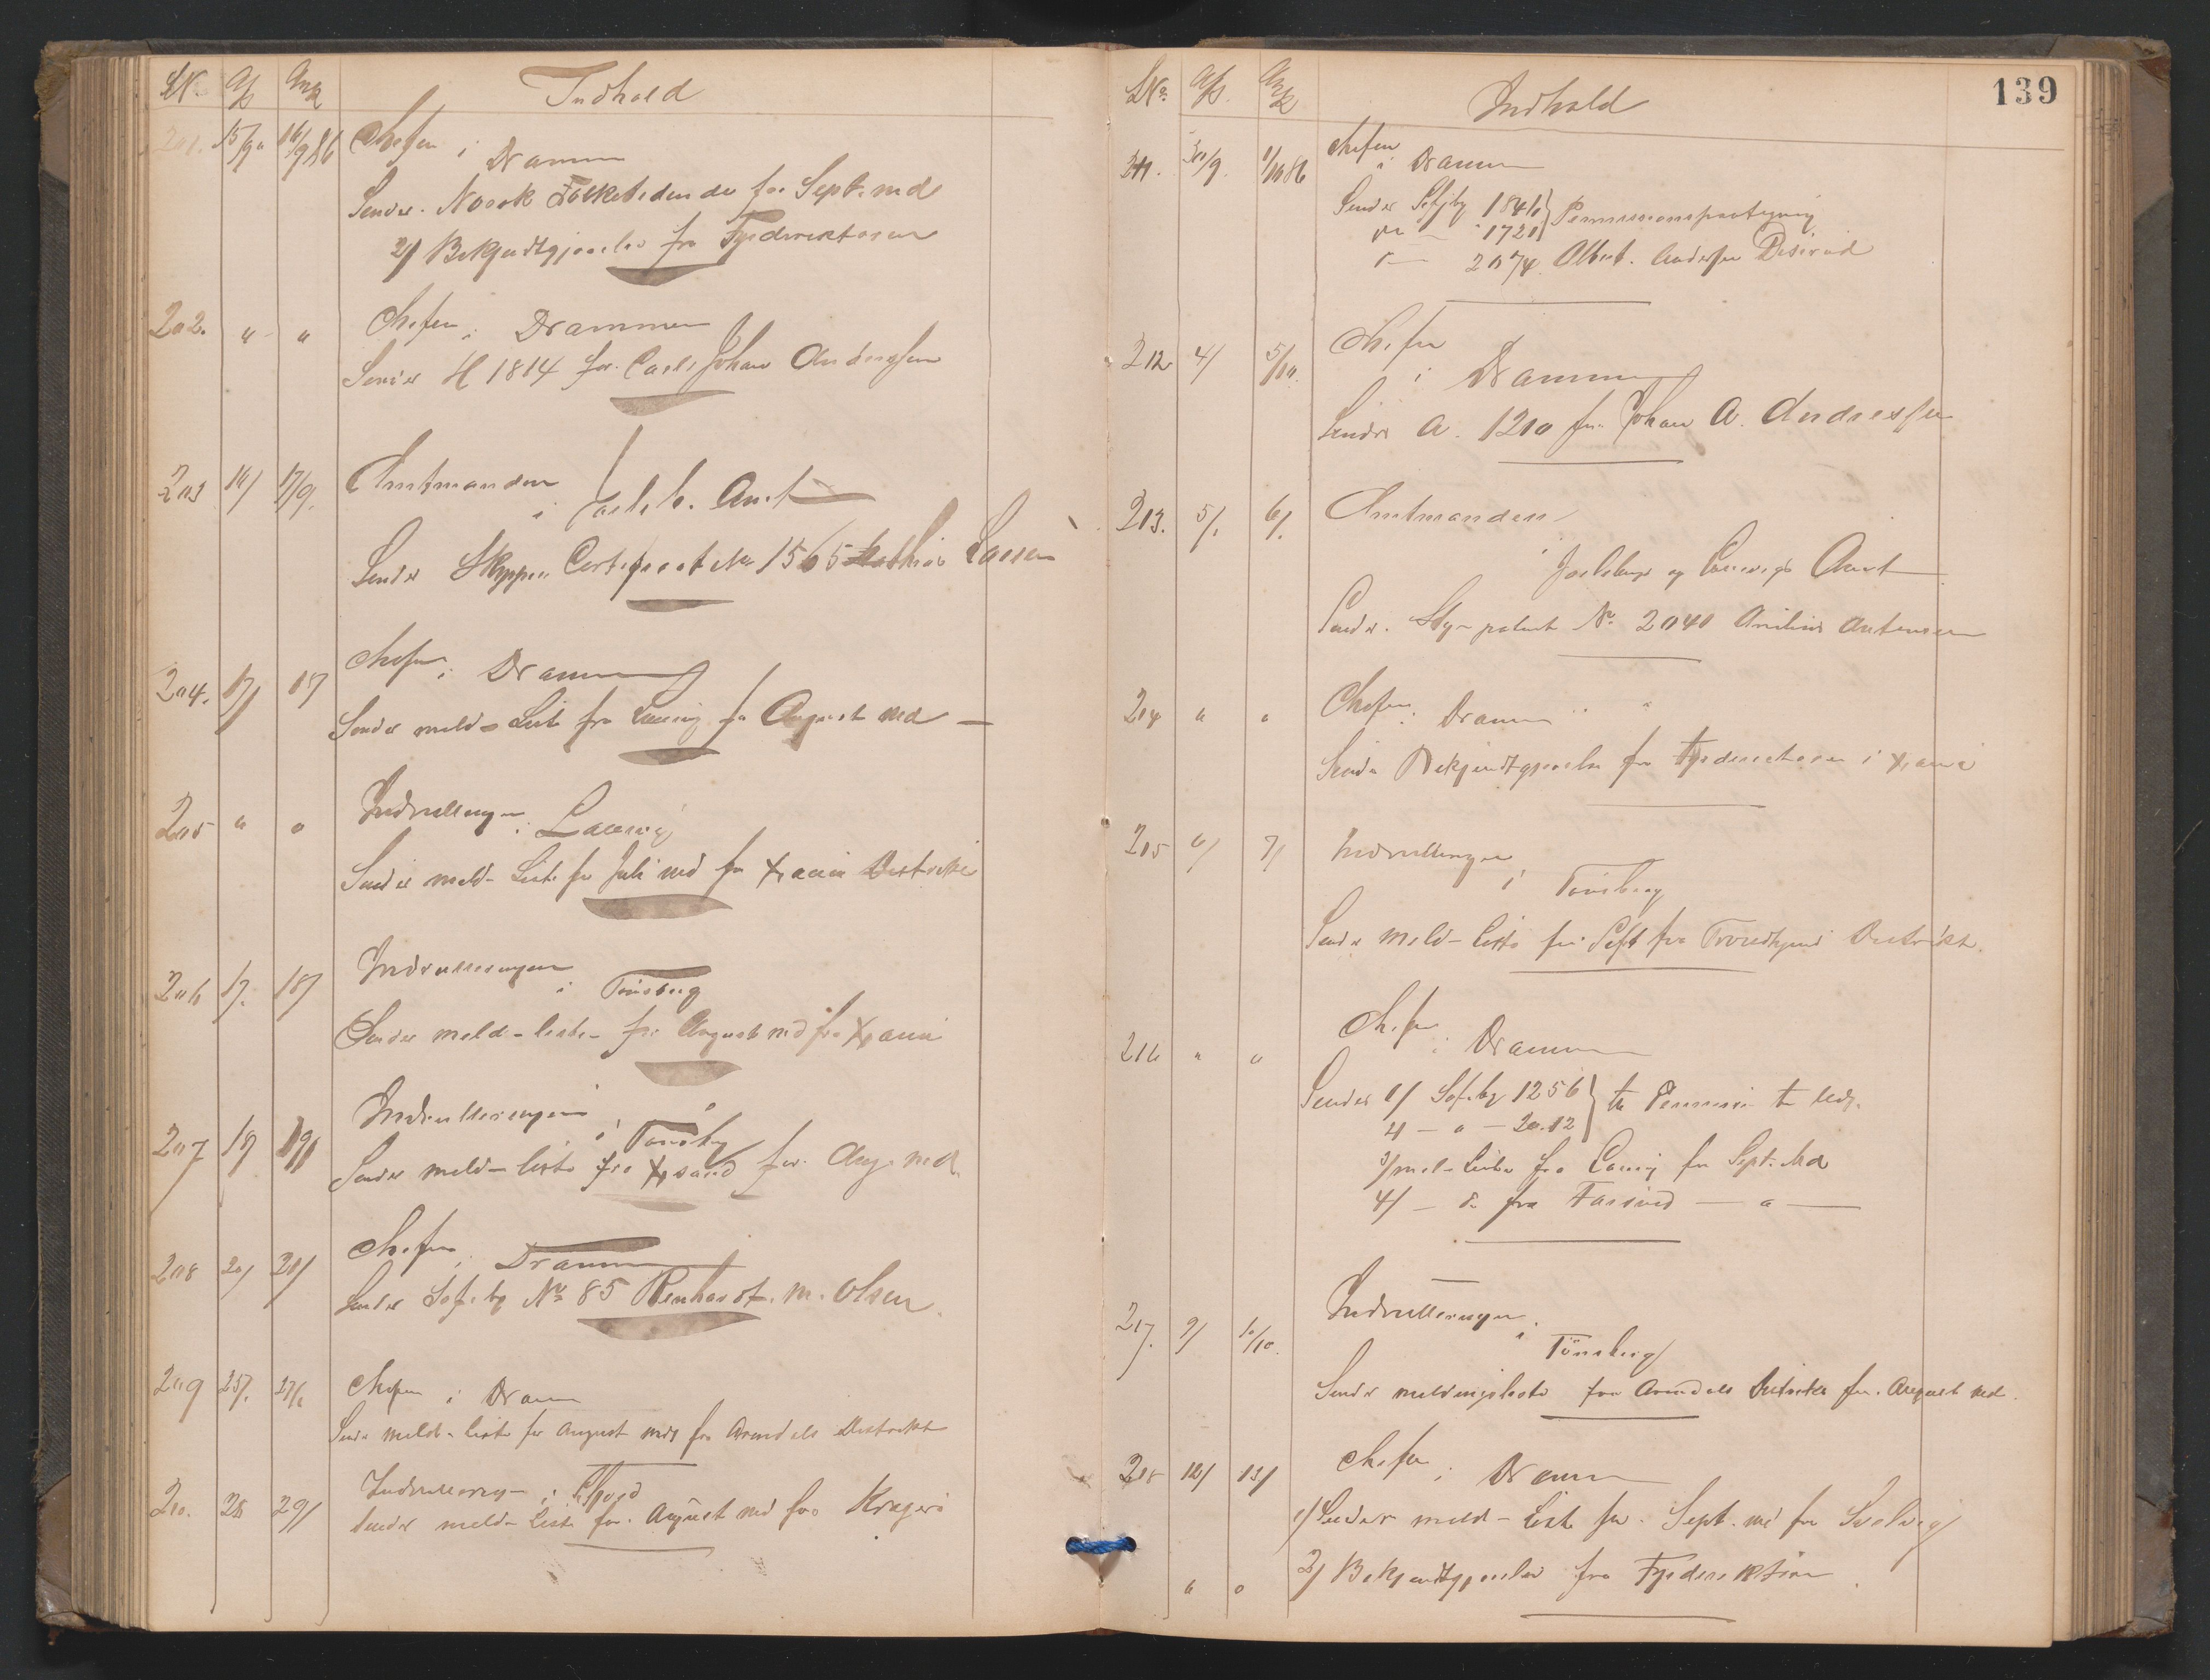 LN. Afs Ank Indhold
201. 15/9 16/9 86 Chefen i Dramm
Sender. Norsk Folketidende for Sept. md
2/ Bekjendtgjørelse fra Fyrdirektøren
202. " " Chefen i Drammen
Sender H 1814 for Carl Johan Andersen
203 16/ 17/9. Amtmanden
i Jarlsb. Amt
Sender Skipper Certifikat No 1565 Mathias Larsen
204. 17/ 18/ Chefen i Dramm
Sender meld- Liste fra Laurvig for August md
205 " " Indrulleringen
i Laurvig
Sender meld- Liste for Juli md fra Xania Distrikt
206 17/. 18/ Indrulleringen
i Tønsberg
Sender meld- liste- for August md fra Xania
207 18/ 19/ Indrulleringen
i Tønsbg
Sender meld- liste fra Xsand for Aug. md.
208 20/ 21/ Chefen i Dramm
Sender Søf. bg No 85 Renhardt. M. Olsen.
209 25/. 27/ Chefen i Dram
Sender meld- liste for August md fra Arendals Distrikt
210. 28 29/ Indrullering i
Sender meld- Liste for August md fra Kragerø
139
LNo. Afs. Ank Indhold
211. 30/9. 1/10 86 Chefen
i Dramm
Sender Søfbg 1846
" 1721 } Permissionspaategning
" 2074 Albert. Andersen
212 4/ 5/10. Chefen
i Dramm
Sender A. 1210 for Johan A. Andreassen
213. 5/. 6/. Amtmanden
i Jarlsberg og Laurvigs Amt
Sender. Styr- patent No. 2040 Anton Antonsen
214 " " Chefen i Dramm
Sender Bekjendtgjørelse fra Fyrdirectøren i Xania
215 6/ 7/ Indrulleringen
i Tønsberg
Sender meld- liste for Sept fra Trondhjems Distrikt.
216 " " Chefen
i Dramm
Sender 1/ Søf. bg 1256
2/ - " - 2012 } til Permission
3/ meld- Liste fra Laurvig for Sept. Md
4/ - do fra Farsund - " -
217. 9/ 10/10. Indrulleringen
i Tønsberg
Sender meldingsliste fra Arendals Distrikt for August md.
218 12/ 13/ Chefen
i Dramm
1/ Sender meld- Liste for Sept. md fra Svelvig
" " 2/ Bekjendtgjørelse fra Fyrdirektøren